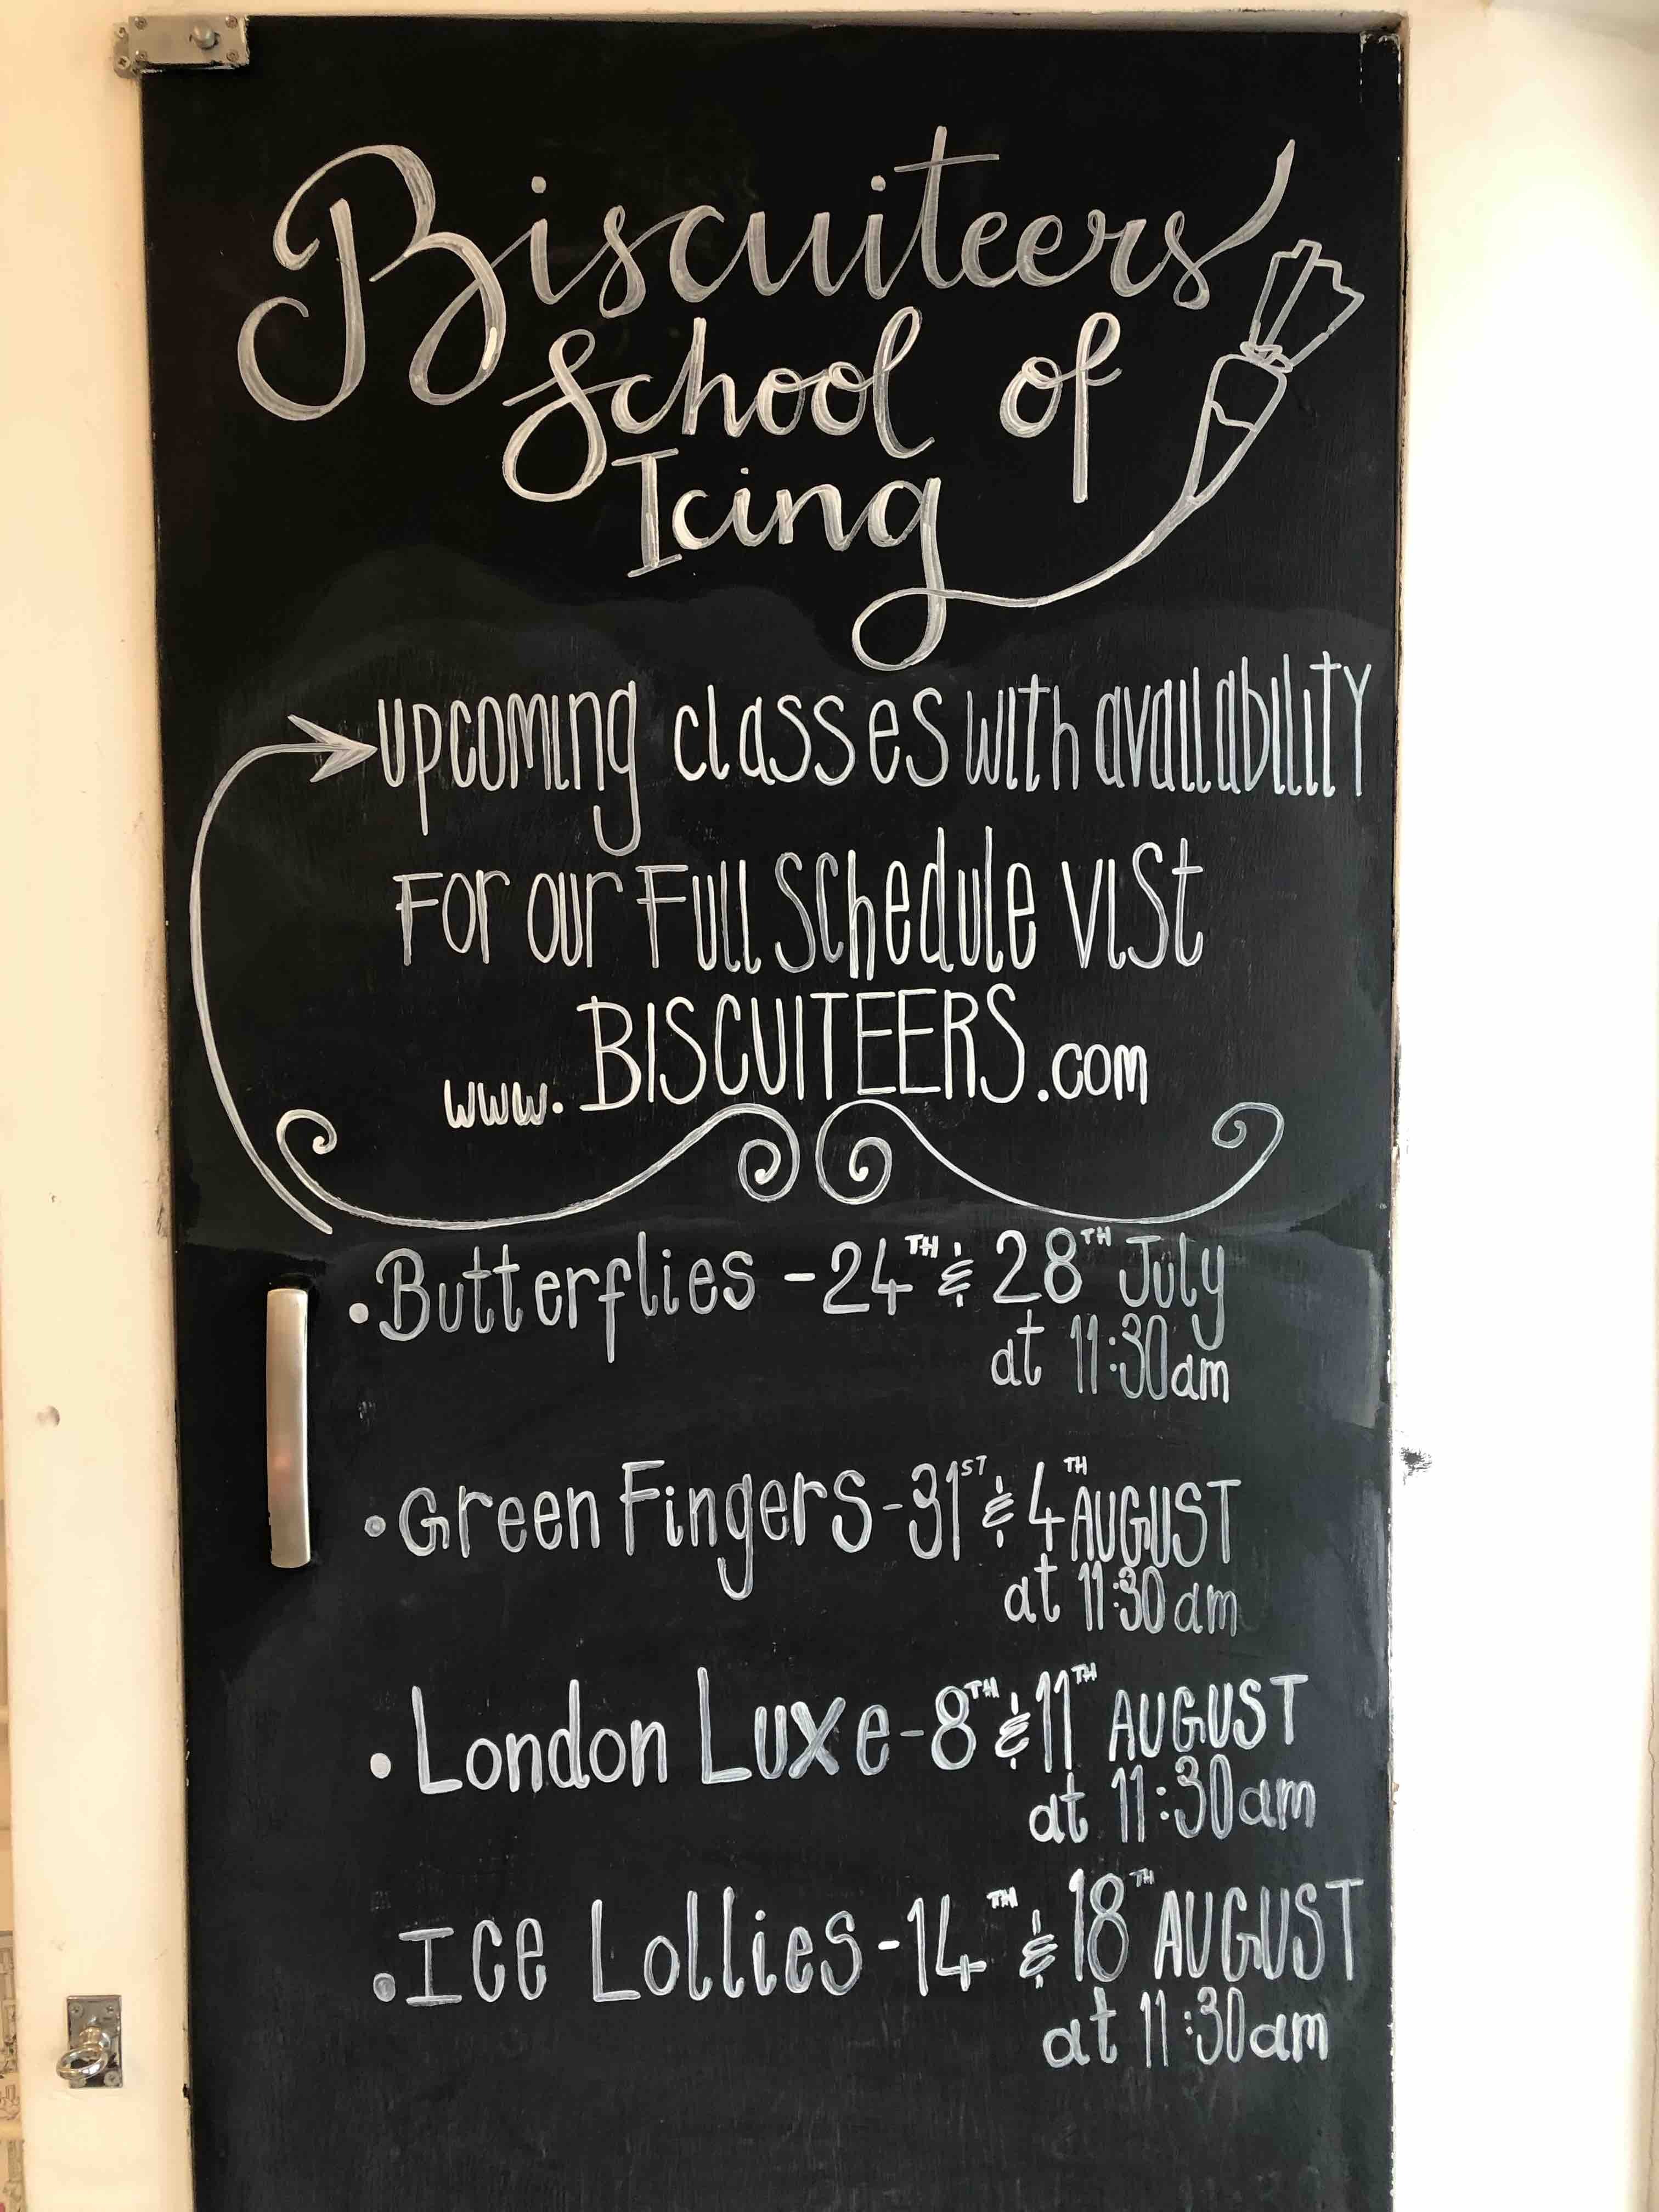 Biscuiteers
School of
Icing
upcoming classes with availability
For our Full Schedule vist
www.BISCUITEERS.com
• Butterflies - 24TH & 28TH July
at 11:30am
• Green Fingers - 31ST & 4TH AUGUST
at 11:30am
• London Luxe - 8TH & 11TH AUGUST
at 11:30am
• Ice Lollies - 14TH & 18TH AUGUST
at 11:30am